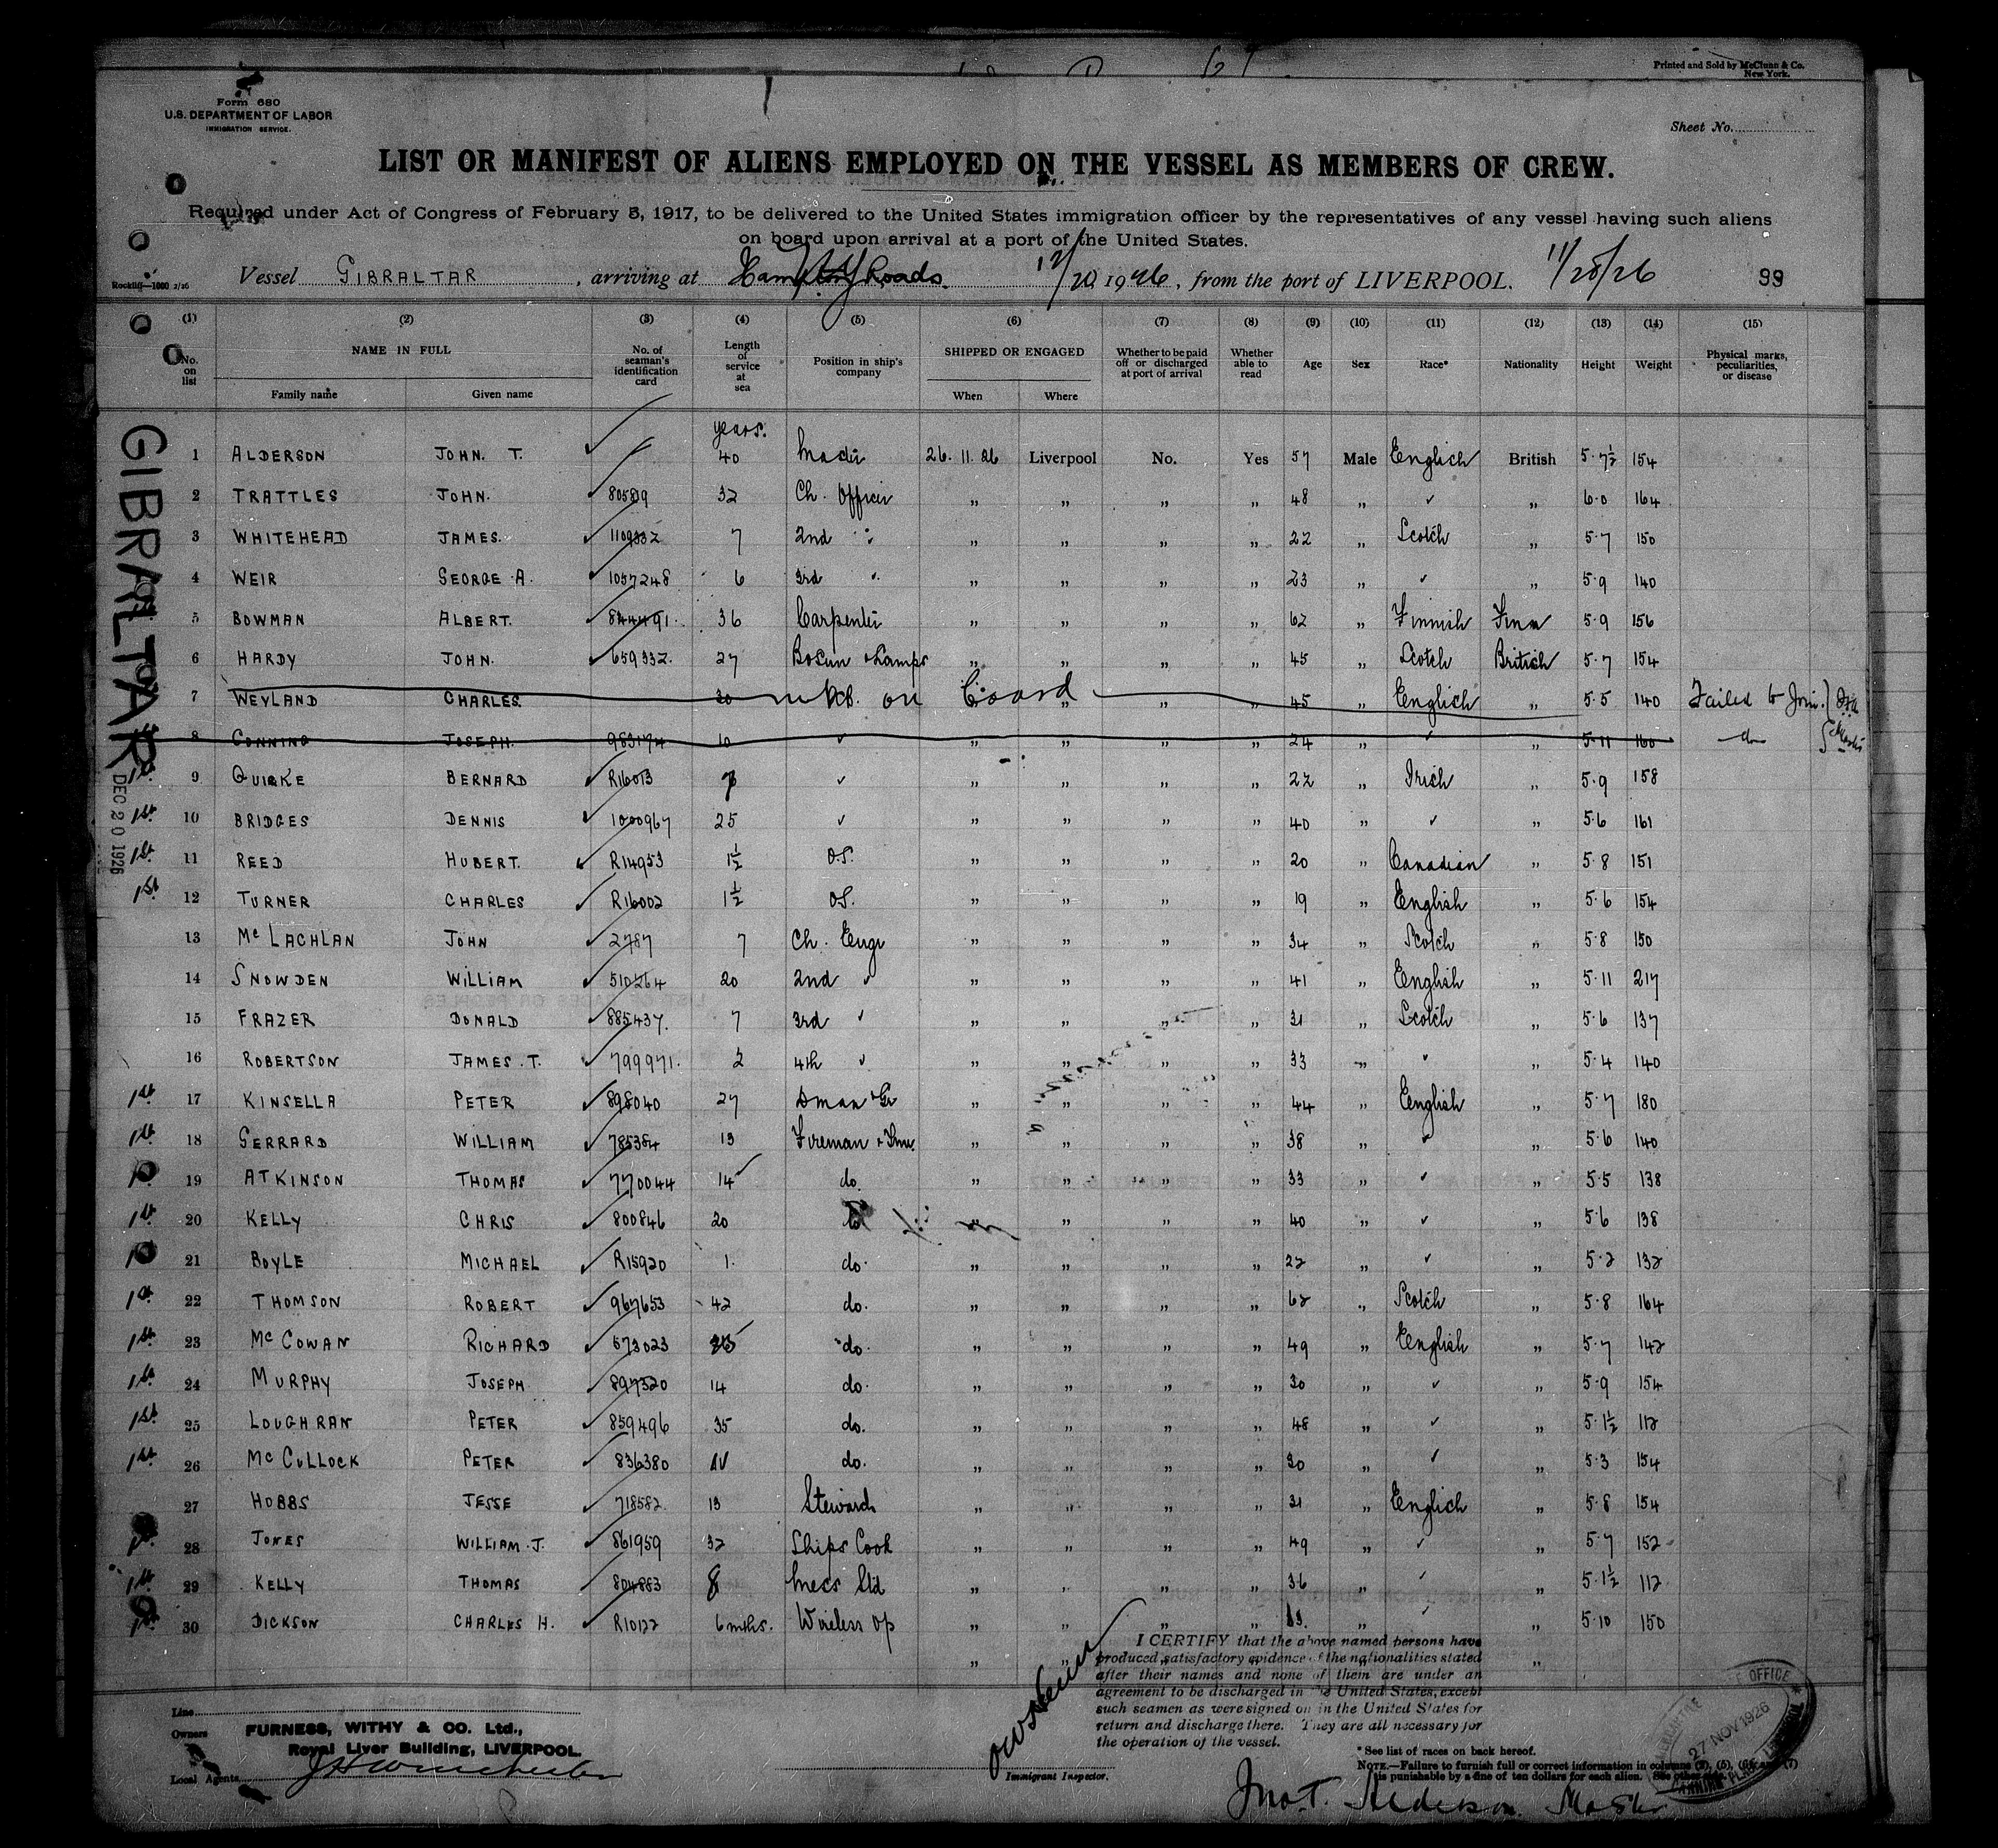 Printed and Sold by McClunn & Co.
New York.
Form 680
U.S. DEPARTMENT OF LABOR
IMMIGRATION SERVICE.
Sheet No.
LIST OR MANIFEST OF ALIENS EMPLOYED ON THE VESSEL AS MEMBERS OF CREW.
Required under Act of Congress of February 5, 1917, to be delivered to the United States immigration officer by the representatives of any vessel having such aliens
on board upon arrival at a port of the United States.
Rockliff—1000 2/26
Vessel GIBRALTAR, arriving at Roads. 12/20 1926, from the port of LIVERPOOL. 11/28/26 99
(1) (2) (3) (4) (5) (6) (7) (8) (9) (10) (11) (12) (13) (14) (15)
No. on list NAME IN FULL Family name Given name No. of seaman's identification card Length of service at sea Position in ship's company SHIPPED OR ENGAGED When Where Whether to be paid off or discharged at port of arrival Whether able to read Age Sex Race* Nationality Height Weight Physical marks, peculiarities, or disease
GIBRALTAR
DEC 20 1926
years.
1 ALDERSON JOHN. T. 40 Master 26.11.26 Liverpool No. Yes 57 Male English British 5.7½ 154
2 TRATTLES JOHN. 80589 32 Ch. Officer " " " " 48 " ✓ " 6.0 164
3 WHITEHEAD JAMES. 1109332 7 2nd " " " " " 22 " Scotch " 5.7 150
4 WEIR GEORGE A. 1057248 6 3rd " " " " " 23 " ✓ " 5.9 140
5 BOWMAN ALBERT. 844491. 36 Carpenter " " " " 62 " Finnish Finn 5.9 156
6 HARDY JOHN. 659332. 27 Bosun & Lamps " " " " 45 " Scotch British 5.7 154
7 WEYLAND CHARLES. 30 not on board " " " 45 " English " 5.5 140 Failed to Join.
8 CONNING JOSEPH. 983174 10 ✓ " " " " 24 " ✓ " 5.11 160 do
1st 9 QUIRKE BERNARD R16013 7 ✓ " " " " 22 " Irish " 5.9 158
1st 10 BRIDGES DENNIS 1000967 25 ✓ " " " " 40 " ✓ " 5.6 161
1st 11 REED HUBERT. R14953 1½ O.S. " " " " 20 " Canadian " 5.8 151
1st 12 TURNER CHARLES R16002 1½ O.S. " " " " 19 " English " 5.6 154
13 McLACHLAN JOHN 2787 7 Ch. Engr " " " " 34 " Scotch " 5.8 150
14 SNOWDEN WILLIAM 510264 20 2nd ✓ " " " " 41 " English " 5.11 217
15 FRAZER DONALD 885437. 7 3rd ✓ " " " " 31 " Scotch " 5.6 137
16 ROBERTSON JAMES. T. 799971. ½ 4th ✓ " " " " 33 " ✓ " 5.4 140
1st 17 KINSELLA PETER 898040 27 Dman & Gr " " " " 44 " English " 5.7 180
1st 18 GERRARD WILLIAM 785384 13 Fireman & Tmr. " " " " 38 " ✓ " 5.6 140
19 ATKINSON THOMAS 770044 14 do. " " " " 33 " ✓ " 5.5 138
1st 20 KELLY CHRIS 800846 20 " " " 40 " ✓ " 5.6 138
21 BOYLE MICHAEL R15920 1. do. " " " " 22 " ✓ " 5.2 132
1st 22 THOMSON ROBERT 967653 42 do. " " " " 62 " Scotch " 5.8 164
1st 23 McCOWAN RICHARD 573023 do. " " " " 49 " English " 5.7 142
1st 24 MURPHY JOSEPH 897320 14 do. " " " " 30 " ✓ " 5.9 154
1st 25 LOUGHRAN PETER 859496 35 do. " " " " 48 " ✓ " 5.1½ 112
1st 26 McCULLOCK PETER 836380 do. " " " " 30 " ✓ " 5.3 154
27 HOBBS JESSE 718582. 13 Steward " " " " 31 " English " 5.8 154
28 JONES WILLIAM. J. 861959 32 Ships Cook " " " " 49 " ✓ " 5.7 152
1st 29 KELLY THOMAS 804883 8 Mess Std " " " " 36 " ✓ " 5.1½ 112
30 DICKSON CHARLES H. R10122 6 mths. Wireless Op " " " " " ✓ " 5.10 150
I CERTIFY that the above named persons have
produced satisfactory evidence of the nationalities stated
after their names and none of them are under an
agreement to be discharged in the United States, except
such seamen as were signed on in the United States for
return and discharge there. They are all necessary for
the operation of the vessel.
Line
Owners FURNESS, WITHY & CO. Ltd.,
Royal Liver Building, LIVERPOOL.
Local Agents
Immigrant Inspector.
* See list of races on back hereof.
NOTE.—Failure to furnish full or correct information in columns (2), (5), (6), and (7)
is punishable by a fine of ten dollars for each alien. See other side.
27 NOV 1926
Jno. T. Alderson. Master